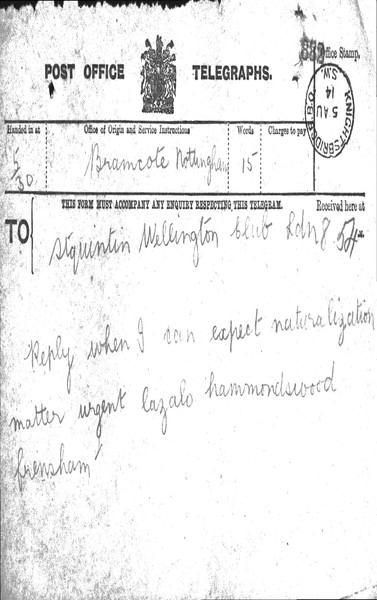 832 Office Stamp.
POST OFFICE TELEGRAPHS.
KNIGHTSBRIDGE B.O. S.W.
5 AU
14
Handed in at
Office of Origin and Service Instructions
Words
Charges to pay
5/30
Bramcote Nottingham
15
THIS FORM MUST ACCOMPANY ANY ENQUIRY RESPECTING THIS TELEGRAM.
Received here at
TO
St quintin Wellington Club Ldn 8.54
Reply when I can expect naturalization
matter urgent lazalo hammondswood
frensham